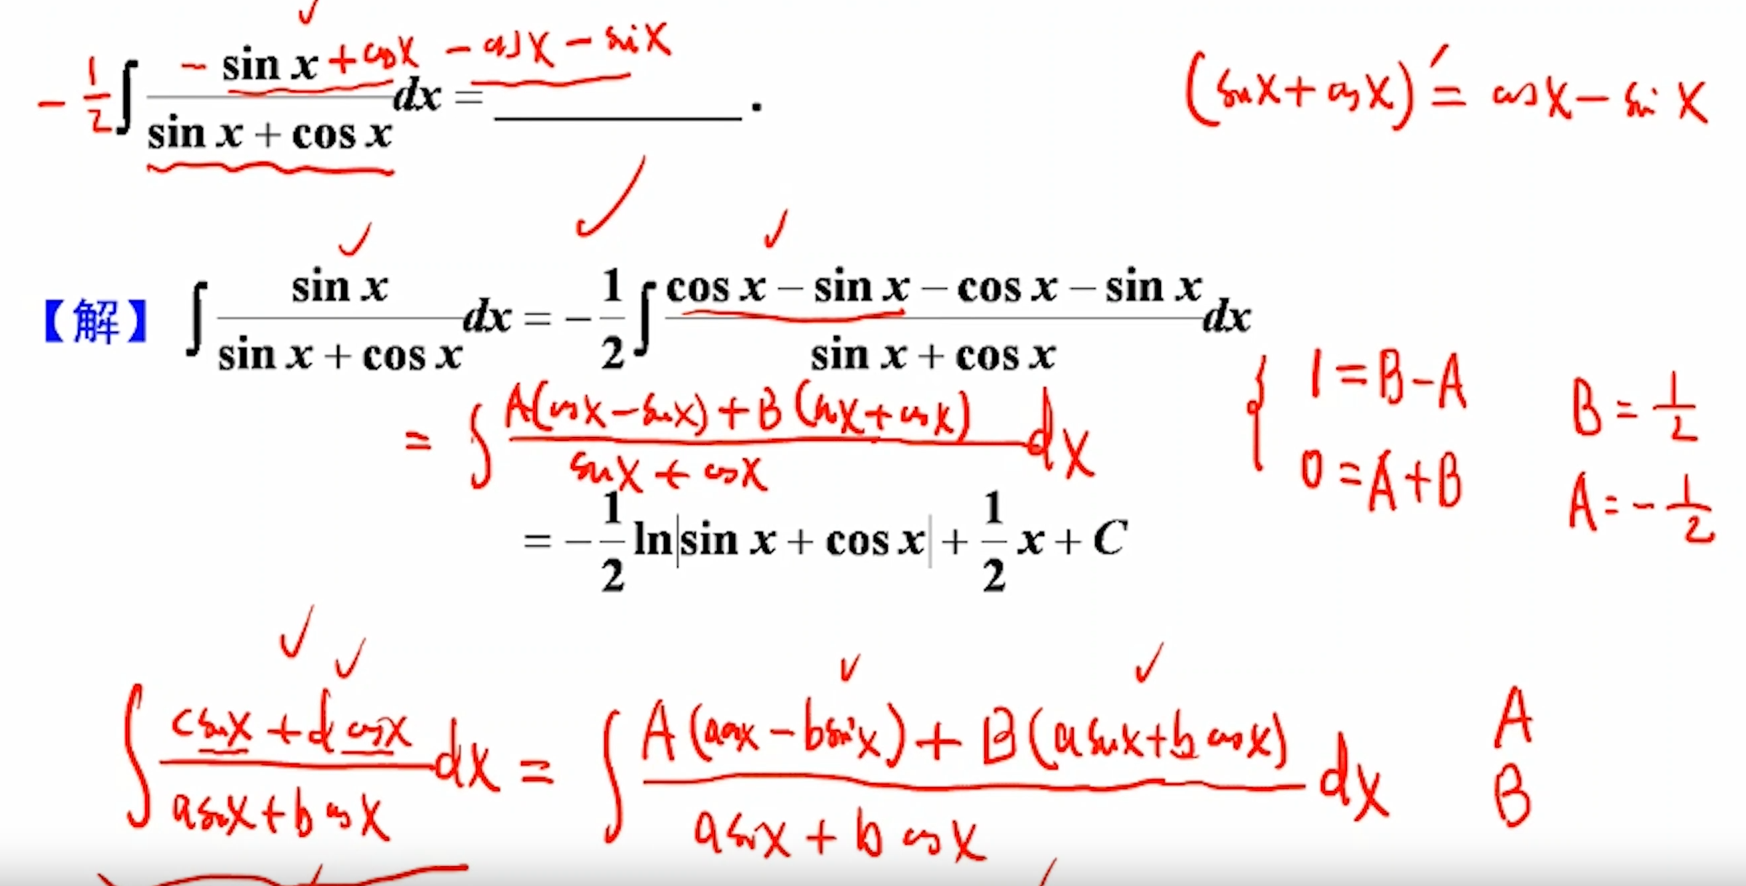 -1/2 ∫ (- sin x + cos x - cos x - sin x)/(sin x + cos x) dx = ________ .
(sin x + cos x)′ = cos x - sin x
【解】 ∫ sin x/(sin x + cos x) dx = -1/2 ∫ (cos x - sin x - cos x - sin x)/(sin x + cos x) dx
= ∫ (A(cos x - sin x) + B(sin x + cos x))/(sin x + cos x) dx
{ 1 = B - A
0 = A + B
B = 1/2
A = -1/2
= -1/2 ln|sin x + cos x| + 1/2 x + C
∫ (c sin x + d cos x)/(a sin x + b cos x) dx = ∫ (A(a cos x - b sin x) + B(a sin x + b cos x))/(a sin x + b cos x) dx
A
B